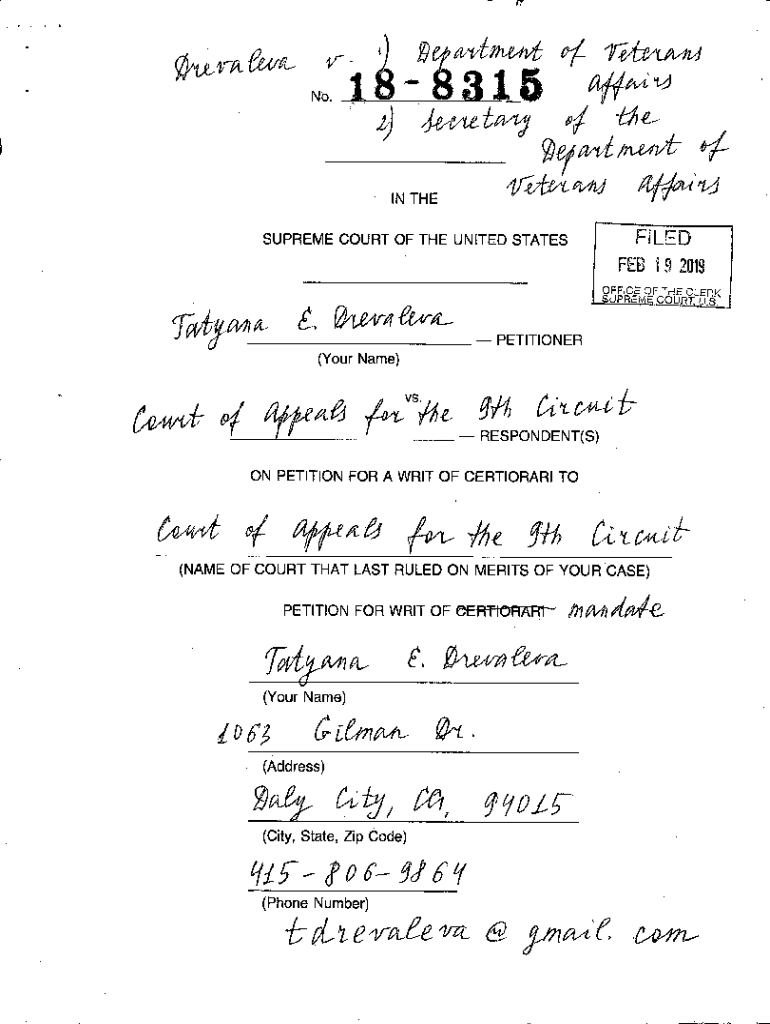 Drevaleva v. 1) Department of Veterans
Affairs
No. 18-8315
2) Secretary of the
Department of
Veterans Affairs
IN THE
SUPREME COURT OF THE UNITED STATES
FILED
FEB 19 2019
OFFICE OF THE CLERK
SUPREME COURT, U.S.
Tatyana E. Drevaleva
— PETITIONER
(Your Name)
vs.
Court of Appeals for the 9th Circuit
— RESPONDENT(S)
ON PETITION FOR A WRIT OF CERTIORARI TO
Court of Appeals for the 9th Circuit
(NAME OF COURT THAT LAST RULED ON MERITS OF YOUR CASE)
PETITION FOR WRIT OF CERTIORARI mandate
Tatyana E. Drevaleva
(Your Name)
1063 Gilman Dr.
(Address)
Daly City, CA, 94015
(City, State, Zip Code)
415-806-9864
(Phone Number)
tdrevaleva@gmail.com